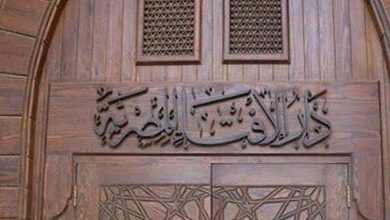 دار الإفتاء المصرية